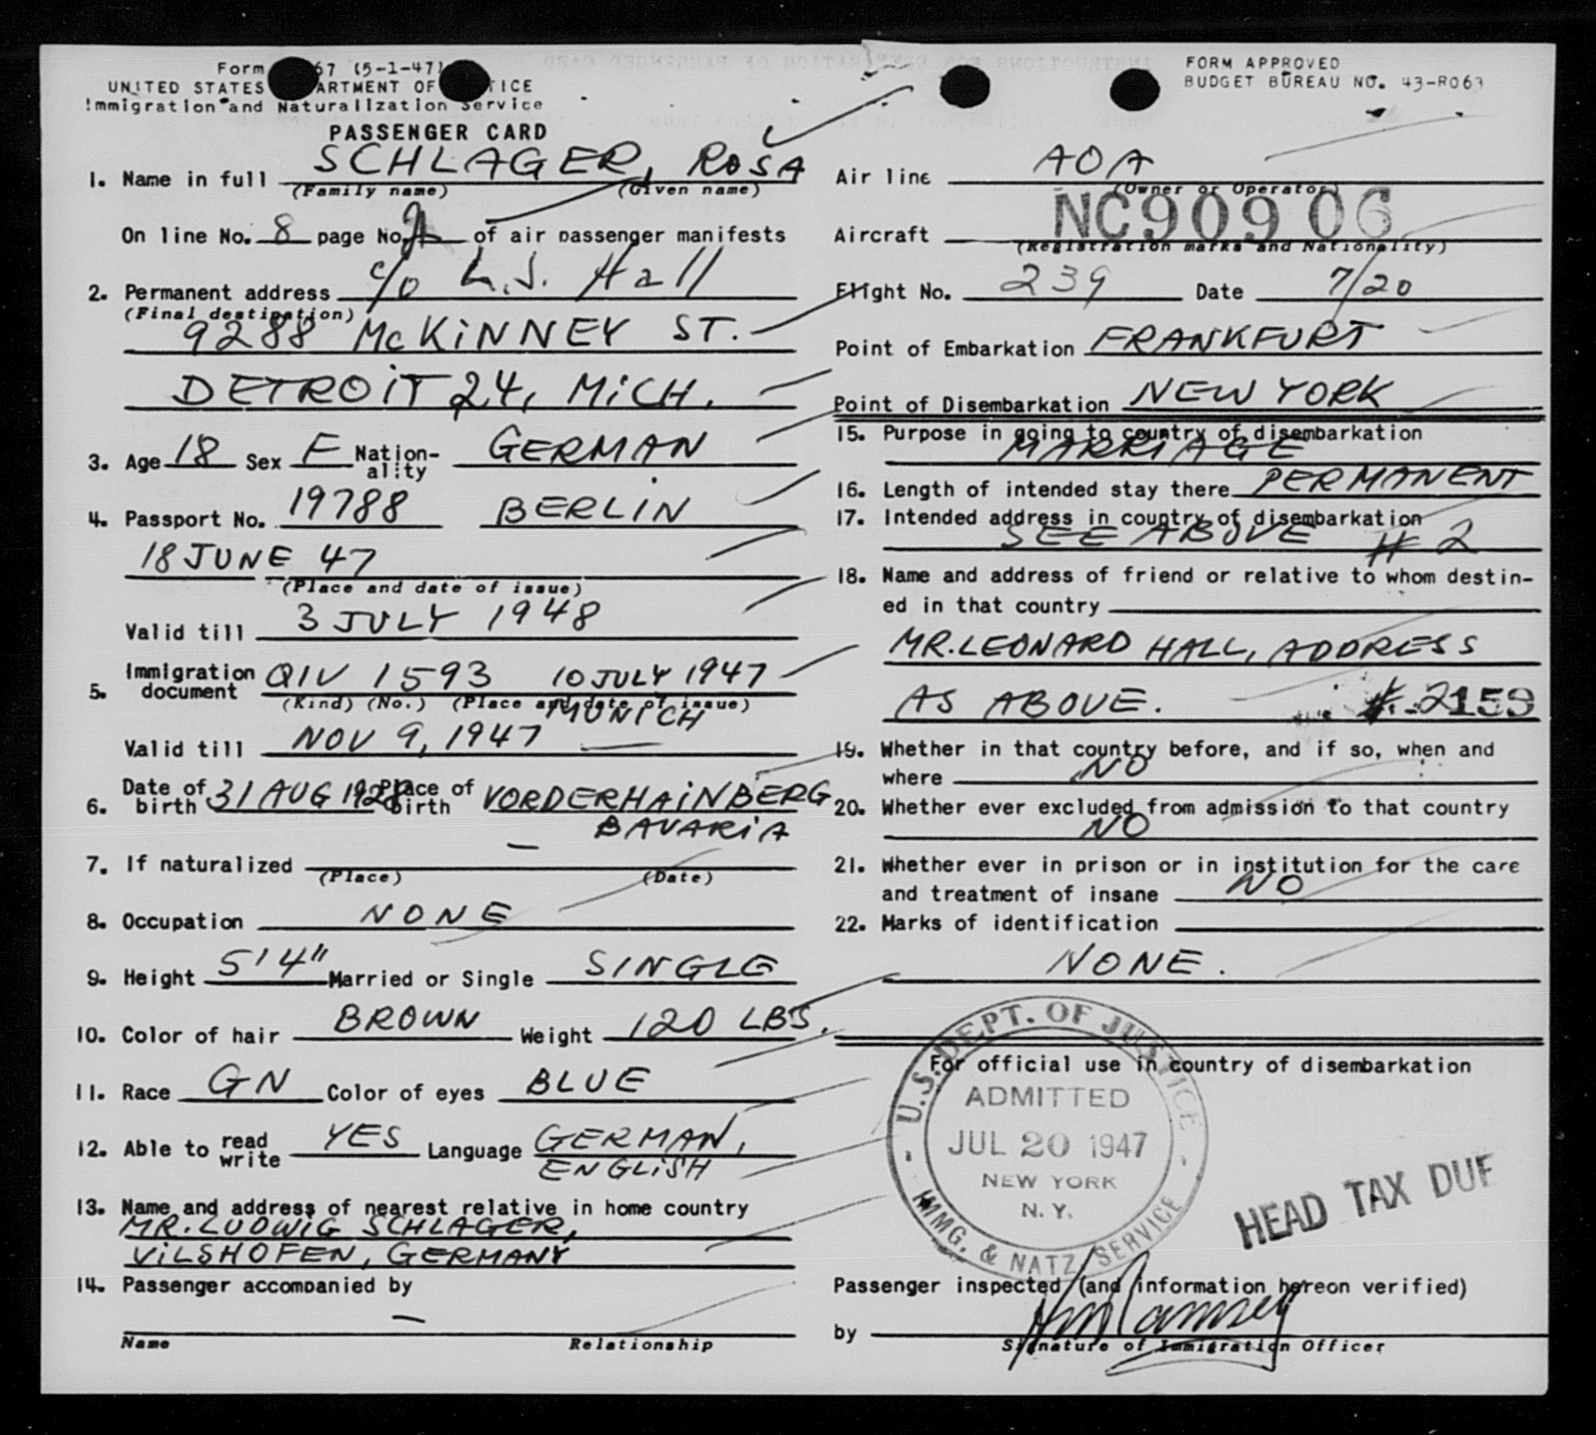 Form 67 (5-1-47)
UNITED STATES ARTMENT OF TICE
Immigration and Naturalization Service
PASSENGER CARD
FORM APPROVED
BUDGET BUREAU NO. 43-R063
1. Name in full SCHLAGER, ROSA
(Family name) (Given name)
On line No. 8 page No. of air passenger manifests
2. Permanent address c/o L.J. Hall
(Final destination)
9288 McKINNEY ST.
DETROIT 24, MICH.
3. Age 18 Sex F Nation-ality GERMAN
4. Passport No. 19788 BERLIN
18 JUNE 47
(Place and date of issue)
Valid till 3 JULY 1948
5. Immigration document QIV 1593 10 JULY 1947
(Kind) (No.) (Place and date of issue)
MUNICH
Valid till NOV 9, 1947
6. Date of birth 31 AUG 1928 Place of birth VORDERHAINBERG
BAVARIA
7. If naturalized —
(Place) (Date)
8. Occupation NONE
9. Height 5'4" Married or Single SINGLE
10. Color of hair BROWN Weight 120 LBS.
11. Race GN Color of eyes BLUE
12. Able to read write YES Language GERMAN,
ENGLISH
13. Name and address of nearest relative in home country
MR. LUDWIG SCHLAGER,
VILSHOFEN, GERMANY
14. Passenger accompanied by
—
Name Relationship
Air line AOA
(Owner or Operator)
Aircraft NC90906
(Registration marks and Nationality)
Flight No. 239 Date 7/20
Point of Embarkation FRANKFURT
Point of Disembarkation NEW YORK
15. Purpose in going to country of disembarkation
MARRIAGE
16. Length of intended stay there PERMANENT
17. Intended address in country of disembarkation
SEE ABOVE # 2
18. Name and address of friend or relative to whom destin-
ed in that country
MR. LEONARD HALL, ADDRESS
AS ABOVE. #.2159
19. Whether in that country before, and if so, when and
where NO
20. Whether ever excluded from admission to that country
NO
21. Whether ever in prison or in institution for the care
and treatment of insane NO
22. Marks of identification
NONE.
For official use in country of disembarkation
U.S. DEPT. OF JUSTICE
ADMITTED
JUL 20 1947
NEW YORK
N. Y.
IMMG. & NATZ. SERVICE
HEAD TAX DUE
Passenger inspected (and information hereon verified)
by
Signature of Immigration Officer